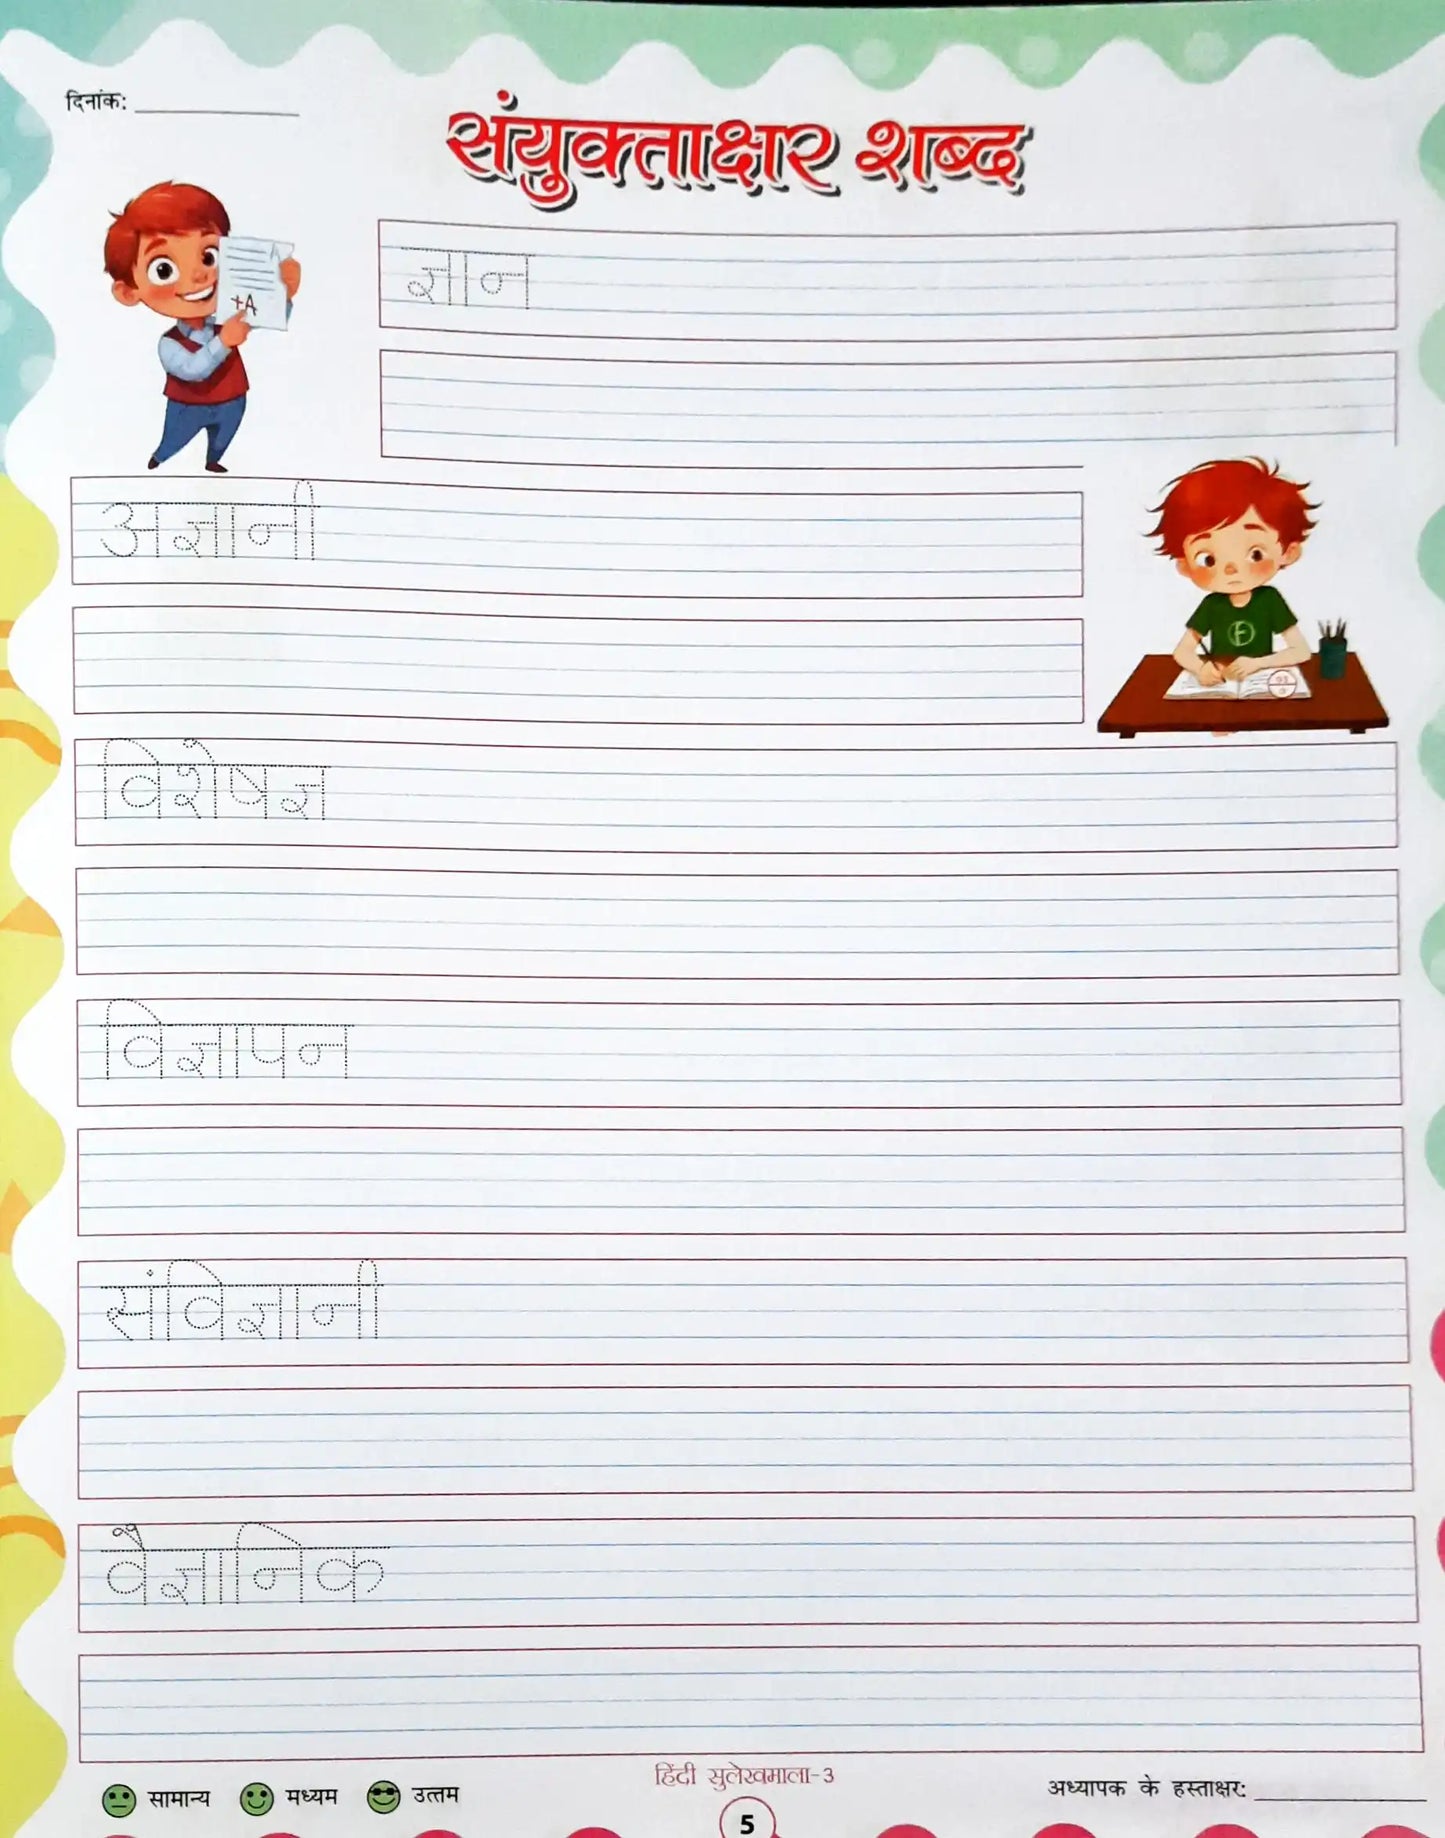 दिनांक:
संयुक्ताक्षर शब्द
+A
ज्ञान
अज्ञानी
F
विशेषज्ञ
विज्ञापन
संविज्ञानी
वैज्ञानिक
सामान्य मध्यम उत्तम
हिंदी सुलेखमाला-३
अध्यापक के हस्ताक्षर:
5